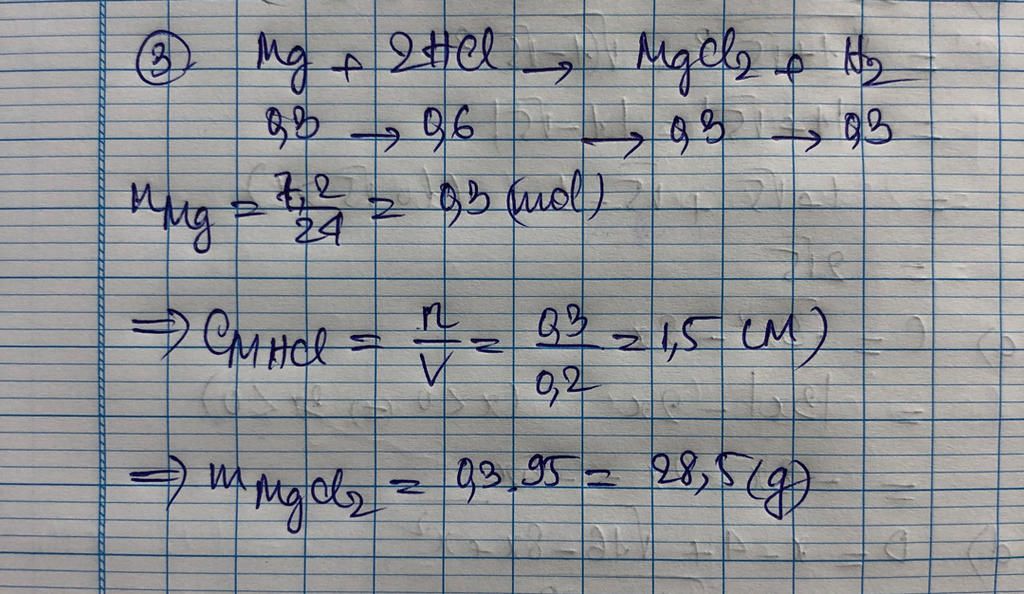 ③ Mg + 2HCl → MgCl₂ + H₂
0,3 → 0,6 → 0,3 → 0,3
nMg = 7,2/24 = 0,3 (mol)
⇒ CMHCl = n/V = 0,3/0,2 = 1,5 (M)
⇒ mMgCl₂ = 0,3.95 = 28,5 (g)